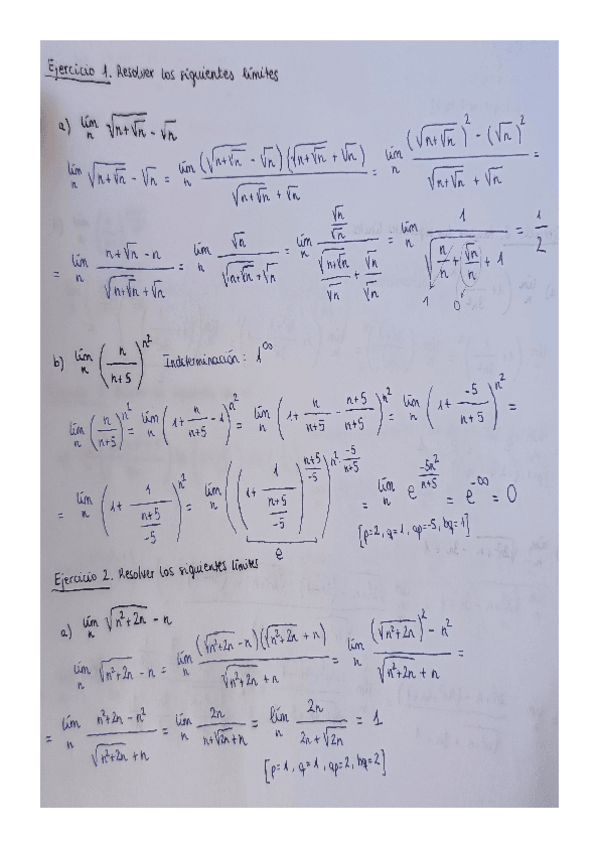 Ejercicio 1. Resolver los siguientes límites
a) lím_n √(n+√n) - √n
lím_n √(n+√n) - √n = lím_n ((√(n+√n) - √n)(√(n+√n) + √n))/(√(n+√n) + √n) = lím_n ((√(n+√n))² - (√n)²)/(√(n+√n) + √n) =
= lím_n (n+√n - n)/(√(n+√n) + √n) = lím_n √n/(√(n+√n) + √n) = lím_n (√n/√n)/(√(n+√n)/√n + √n/√n) = lím_n 1/(√(n/n + √n/n) + 1) = 1/2
1 0
b) lím_n (n/(n+5))^(n²) Indeterminación: 1^∞
lím_n (n/(n+5))^(n²) = lím_n (1 + n/(n+5) - 1)^(n²) = lím_n (1 + n/(n+5) - (n+5)/(n+5))^(n²) = lím_n (1 + (-5)/(n+5))^(n²) =
= lím_n (1 + 1/((n+5)/(-5)))^(n²) = lím_n ((1 + 1/((n+5)/(-5)))^((n+5)/(-5)))^(n² · (-5)/(n+5)) = lím_n e^((-5n²)/(n+5)) = e^(-∞) = 0
e
[p=2, q=1, ap=-5, bq=1]
Ejercicio 2. Resolver los siguientes límites
a) lím_n √(n²+2n) - n
lím_n √(n²+2n) - n = lím_n ((√(n²+2n) - n)(√(n²+2n) + n))/(√(n²+2n) + n) = lím_n ((√(n²+2n))² - n²)/(√(n²+2n) + n) =
= lím_n (n²+2n - n²)/(√(n²+2n) + n) = lím_n 2n/(n+√2n + n) = lím_n 2n/(2n+√2n) = 1
[p=1, q=1, ap=2, bq=2]